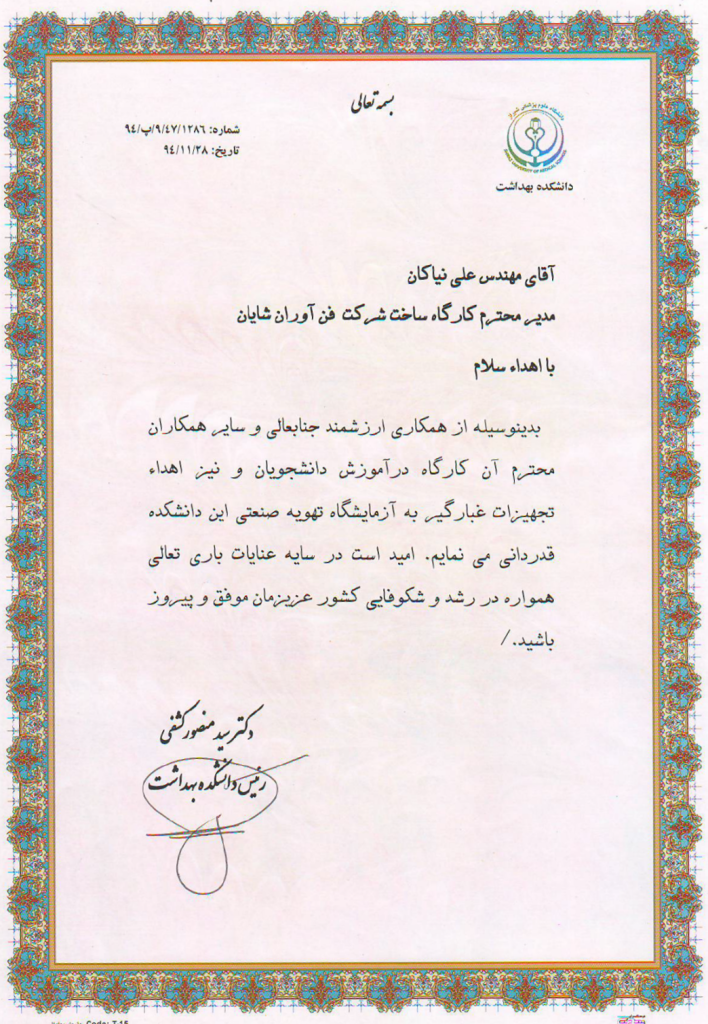 بسمه تعالی
دانشگاه علوم پزشکی شیراز
SHIRAZ UNIVERSITY OF MEDICAL SCIENCES
دانشکده بهداشت
شماره: ۹٤/پ/۹/٤۷/۱۲۸٦
تاریخ: ۹٤/۱۱/۲۸
آقای مهندس علی نیاکان
مدیر محترم کارگاه ساخت شرکت فن آوران شایان
با اهداء سلام
بدینوسیله از همکاری ارزشمند جنابعالی و سایر همکاران
محترم آن کارگاه درآموزش دانشجویان و نیز اهداء
تجهیزات غبارگیر به آزمایشگاه تهویه صنعتی این دانشکده
قدردانی می نمایم. امید است در سایه عنایات باری تعالی
همواره در رشد و شکوفایی کشور عزیزمان موفق و پیروز
باشید./
دکتر سید منصور کشفی
رئیس دانشکده بهداشت
Code: T-15